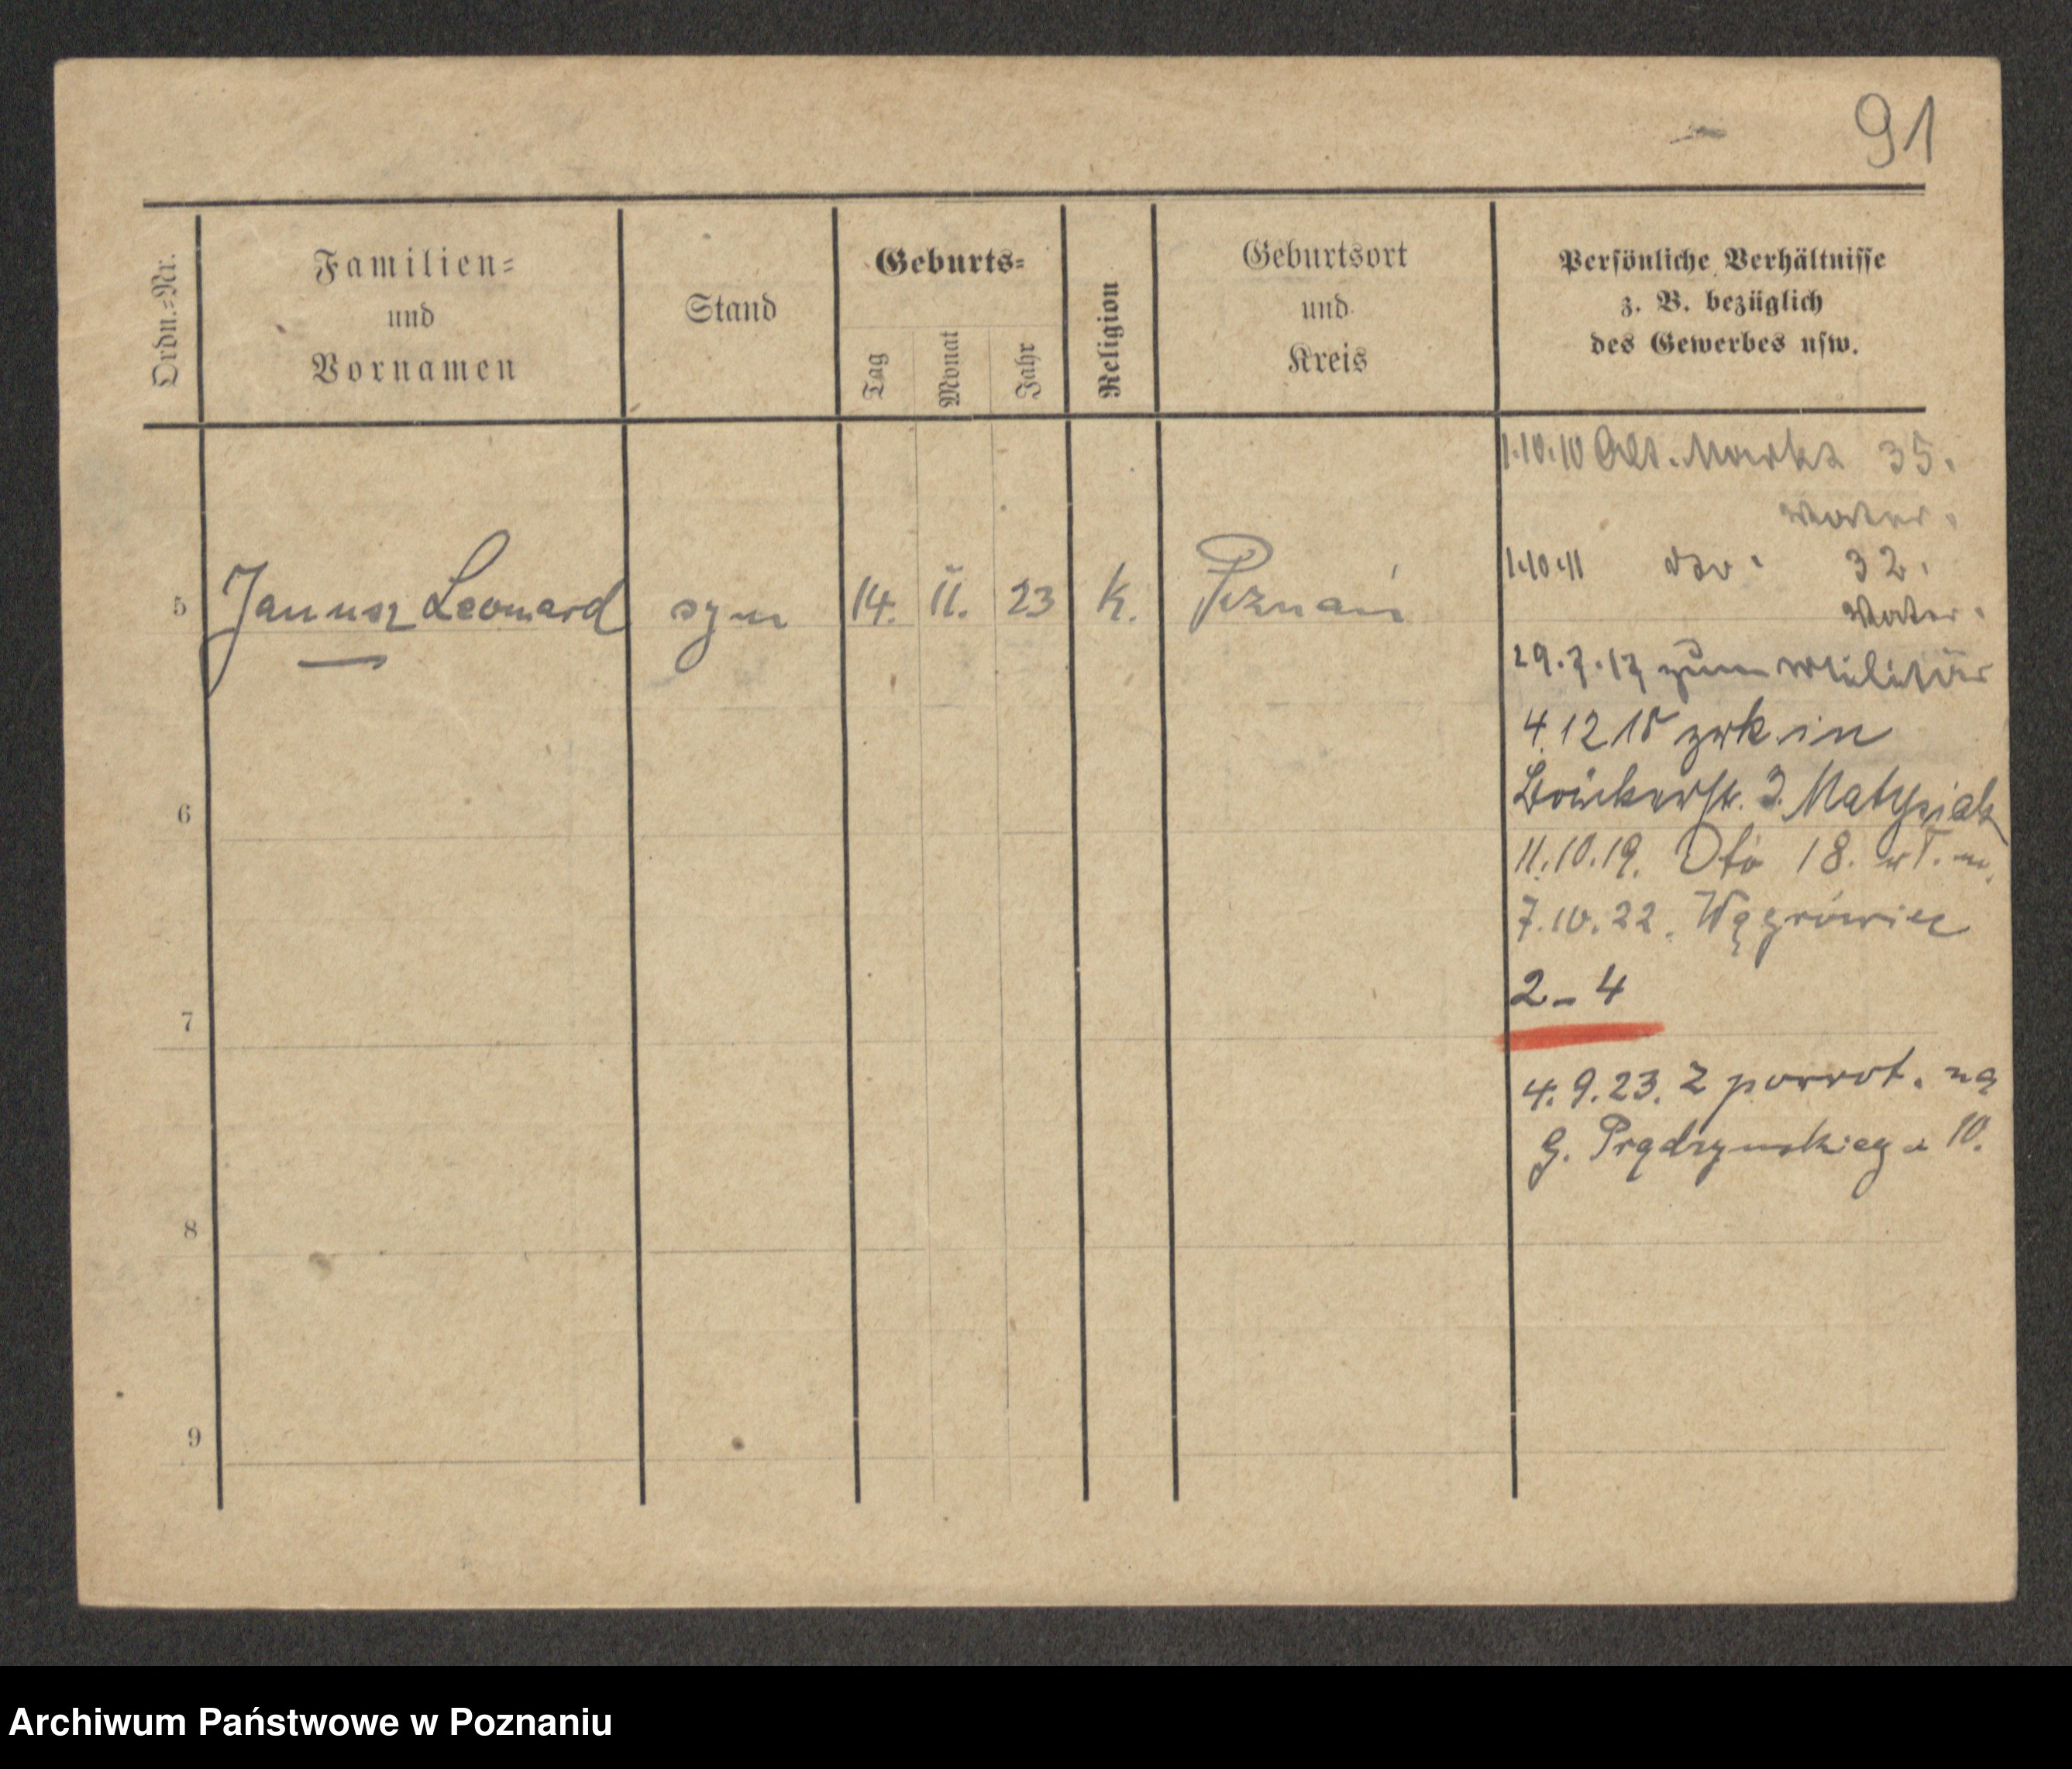 91
Ordn.-Nr.
Familien-
und
Vornamen
Stand
Geburts-
Tag
Monat
Jahr
Religion
Geburtsort
und
Kreis
Persönliche Verhältnisse
z. B. bezüglich
des Gewerbes usw.
1.10.10 Alt. Markt 35.
Vater.
1.10.11 dto. 32.
Vater.
5 Janusz Leonard syn 14. II. 23 k. Poznań
29.7.17 zum Militär
4.12.18 zrk. in
3. Matysiak
6
11.10.19. 18.
7.10.22. Wągrówiec
2-4
7
4.9.23. Z powrot. na
G. Prądzynskiego 10.
8
9
Archiwum Państwowe w Poznaniu